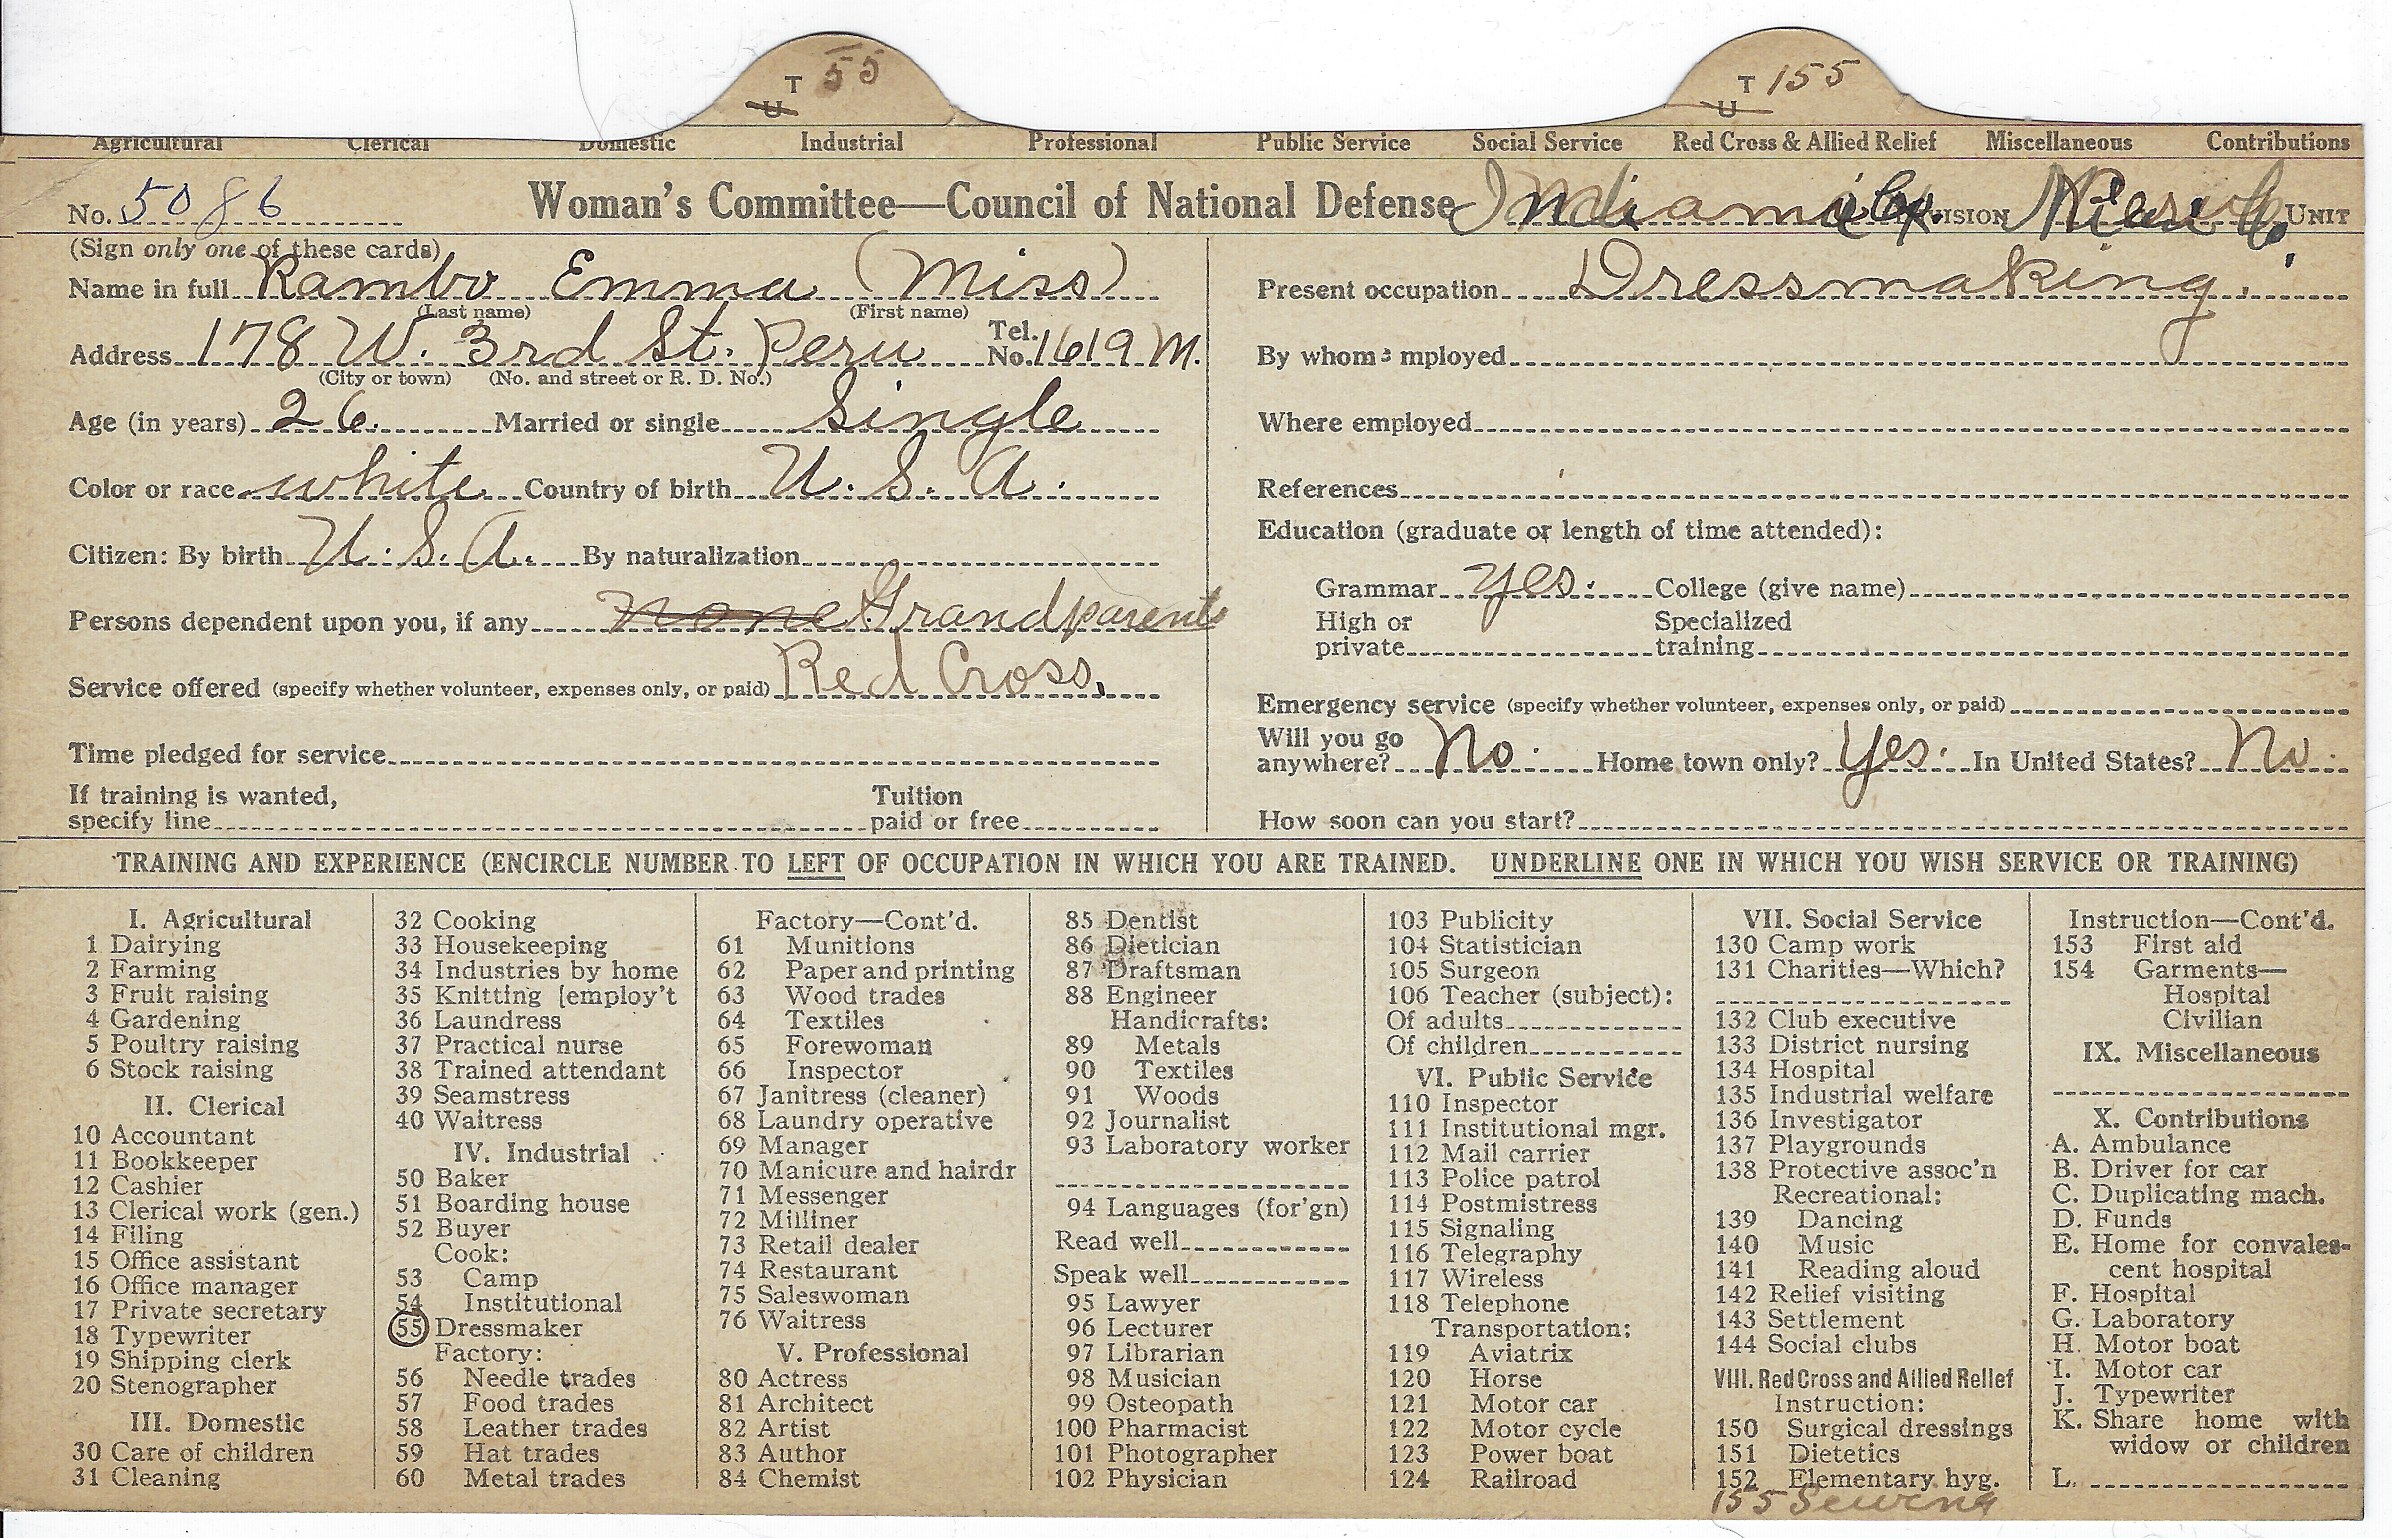 T 55
U
T 155
U
Agricultural Clerical Domestic Industrial Professional Public Service Social Service Red Cross & Allied Relief Miscellaneous Contributions
No. 5086 Woman's Committee—Council of National Defense Indiana Division UNIT
(Sign only one of these cards)
Name in full Rambo Emma (Miss)
(Last name) (First name)
Address 178 W. 3rd St. Peru Tel. No. 1619 M.
(City or town) (No. and street or R. D. No.)
Age (in years) 26. Married or single Single
Color or race white Country of birth U. S. A.
Citizen: By birth U. S. A. By naturalization
Persons dependent upon you, if any none Grandparents
Service offered (specify whether volunteer, expenses only, or paid) Red Cross.
Time pledged for service
If training is wanted, specify line Tuition paid or free
Present occupation Dressmaking.
By whom employed
Where employed
References
Education (graduate or length of time attended):
Grammar yes. College (give name)
High or private Specialized training
Emergency service (specify whether volunteer, expenses only, or paid)
Will you go anywhere? No. Home town only? Yes. In United States? No.
How soon can you start?
TRAINING AND EXPERIENCE (ENCIRCLE NUMBER TO LEFT OF OCCUPATION IN WHICH YOU ARE TRAINED. UNDERLINE ONE IN WHICH YOU WISH SERVICE OR TRAINING)
I. Agricultural
1 Dairying
2 Farming
3 Fruit raising
4 Gardening
5 Poultry raising
6 Stock raising
II. Clerical
10 Accountant
11 Bookkeeper
12 Cashier
13 Clerical work (gen.)
14 Filing
15 Office assistant
16 Office manager
17 Private secretary
18 Typewriter
19 Shipping clerk
20 Stenographer
III. Domestic
30 Care of children
31 Cleaning
32 Cooking
33 Housekeeping
34 Industries by home
35 Knitting [employ't
36 Laundress
37 Practical nurse
38 Trained attendant
39 Seamstress
40 Waitress
IV. Industrial
50 Baker
51 Boarding house
52 Buyer
Cook:
53 Camp
54 Institutional
55 Dressmaker
Factory:
56 Needle trades
57 Food trades
58 Leather trades
59 Hat trades
60 Metal trades
Factory—Cont'd.
61 Munitions
62 Paper and printing
63 Wood trades
64 Textiles
65 Forewoman
66 Inspector
67 Janitress (cleaner)
68 Laundry operative
69 Manager
70 Manicure and hairdr
71 Messenger
72 Milliner
73 Retail dealer
74 Restaurant
75 Saleswoman
76 Waitress
V. Professional
80 Actress
81 Architect
82 Artist
83 Author
84 Chemist
85 Dentist
86 Dietician
87 Draftsman
88 Engineer
Handicrafts:
89 Metals
90 Textiles
91 Woods
92 Journalist
93 Laboratory worker
94 Languages (for'gn)
Read well
Speak well
95 Lawyer
96 Lecturer
97 Librarian
98 Musician
99 Osteopath
100 Pharmacist
101 Photographer
102 Physician
103 Publicity
104 Statistician
105 Surgeon
106 Teacher (subject):
Of adults
Of children
VI. Public Service
110 Inspector
111 Institutional mgr.
112 Mail carrier
113 Police patrol
114 Postmistress
115 Signaling
116 Telegraphy
117 Wireless
118 Telephone
Transportation:
119 Aviatrix
120 Horse
121 Motor car
122 Motor cycle
123 Power boat
124 Railroad
VII. Social Service
130 Camp work
131 Charities—Which?
132 Club executive
133 District nursing
134 Hospital
135 Industrial welfare
136 Investigator
137 Playgrounds
138 Protective assoc'n
Recreational:
139 Dancing
140 Music
141 Reading aloud
142 Relief visiting
143 Settlement
144 Social clubs
VIII. Red Cross and Allied Relief
Instruction:
150 Surgical dressings
151 Dietetics
152 Elementary hyg.
155 Sewing
Instruction—Cont'd.
153 First aid
154 Garments—
Hospital
Civilian
IX. Miscellaneous
X. Contributions
A. Ambulance
B. Driver for car
C. Duplicating mach.
D. Funds
E. Home for convales-
cent hospital
F. Hospital
G. Laboratory
H. Motor boat
I. Motor car
J. Typewriter
K. Share home with
widow or children
L.